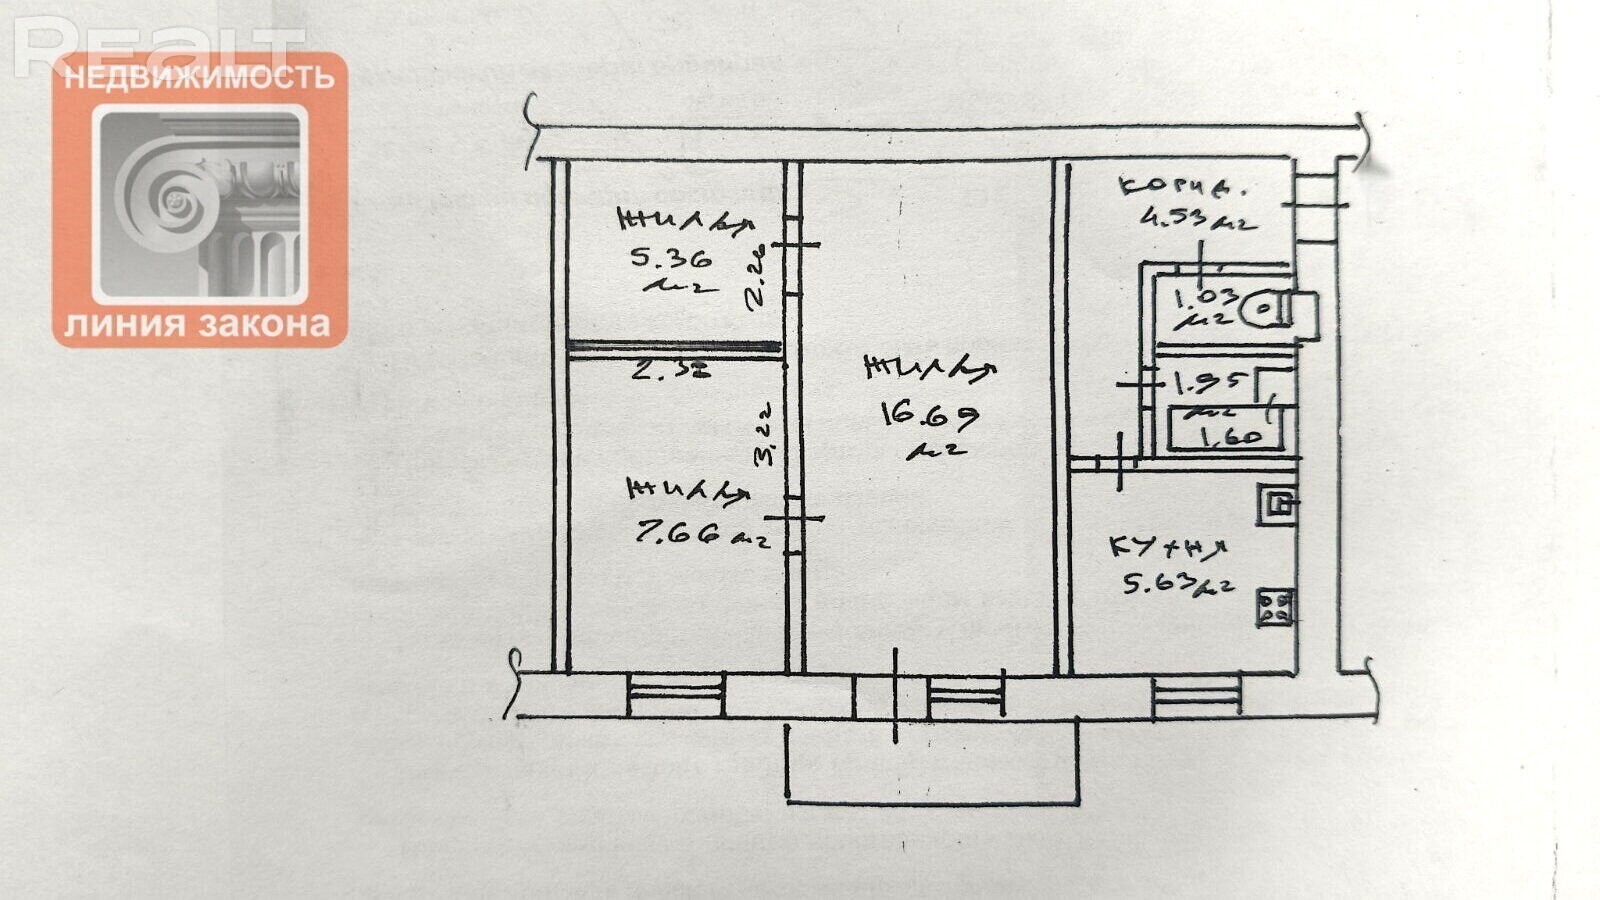 Realt
НЕДВИЖИМОСТЬ
ЛИНИЯ ЗАКОНА
жилая
5.36
м2
2.26
2.38
3.22
жилая
7.66 м2
жилая
16.69
м2
корид.
4.53 м2
1.03
м2
1.95
м2
1.60
кухня
5.63 м2